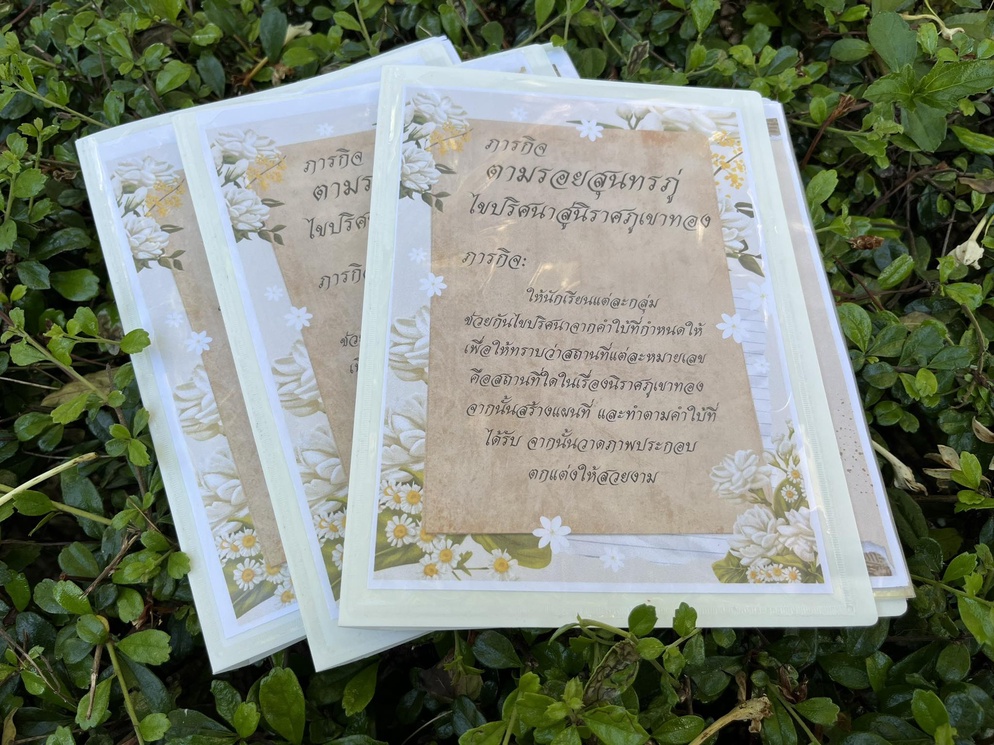 ภารกิจ
ตามรอยสุนทรภู่
ไขปริศนาสู่นิราศภูเขาทอง
ภารกิจ:
ให้นักเรียนแต่ละกลุ่ม
ช่วยกันไขปริศนาจากคำใบ้ที่กำหนดให้
เพื่อให้ทราบว่าสถานที่แต่ละหมายเลข
คือสถานที่ใดในเรื่องนิราศภูเขาทอง
จากนั้นสร้างแผนที่ และทำตามคำใบ้ที่
ได้รับ จากนั้นวาดภาพประกอบ
ตกแต่งให้สวยงาม
ภารกิจ
ตามร
ไขปริศ
ภารกิ
ช่ว